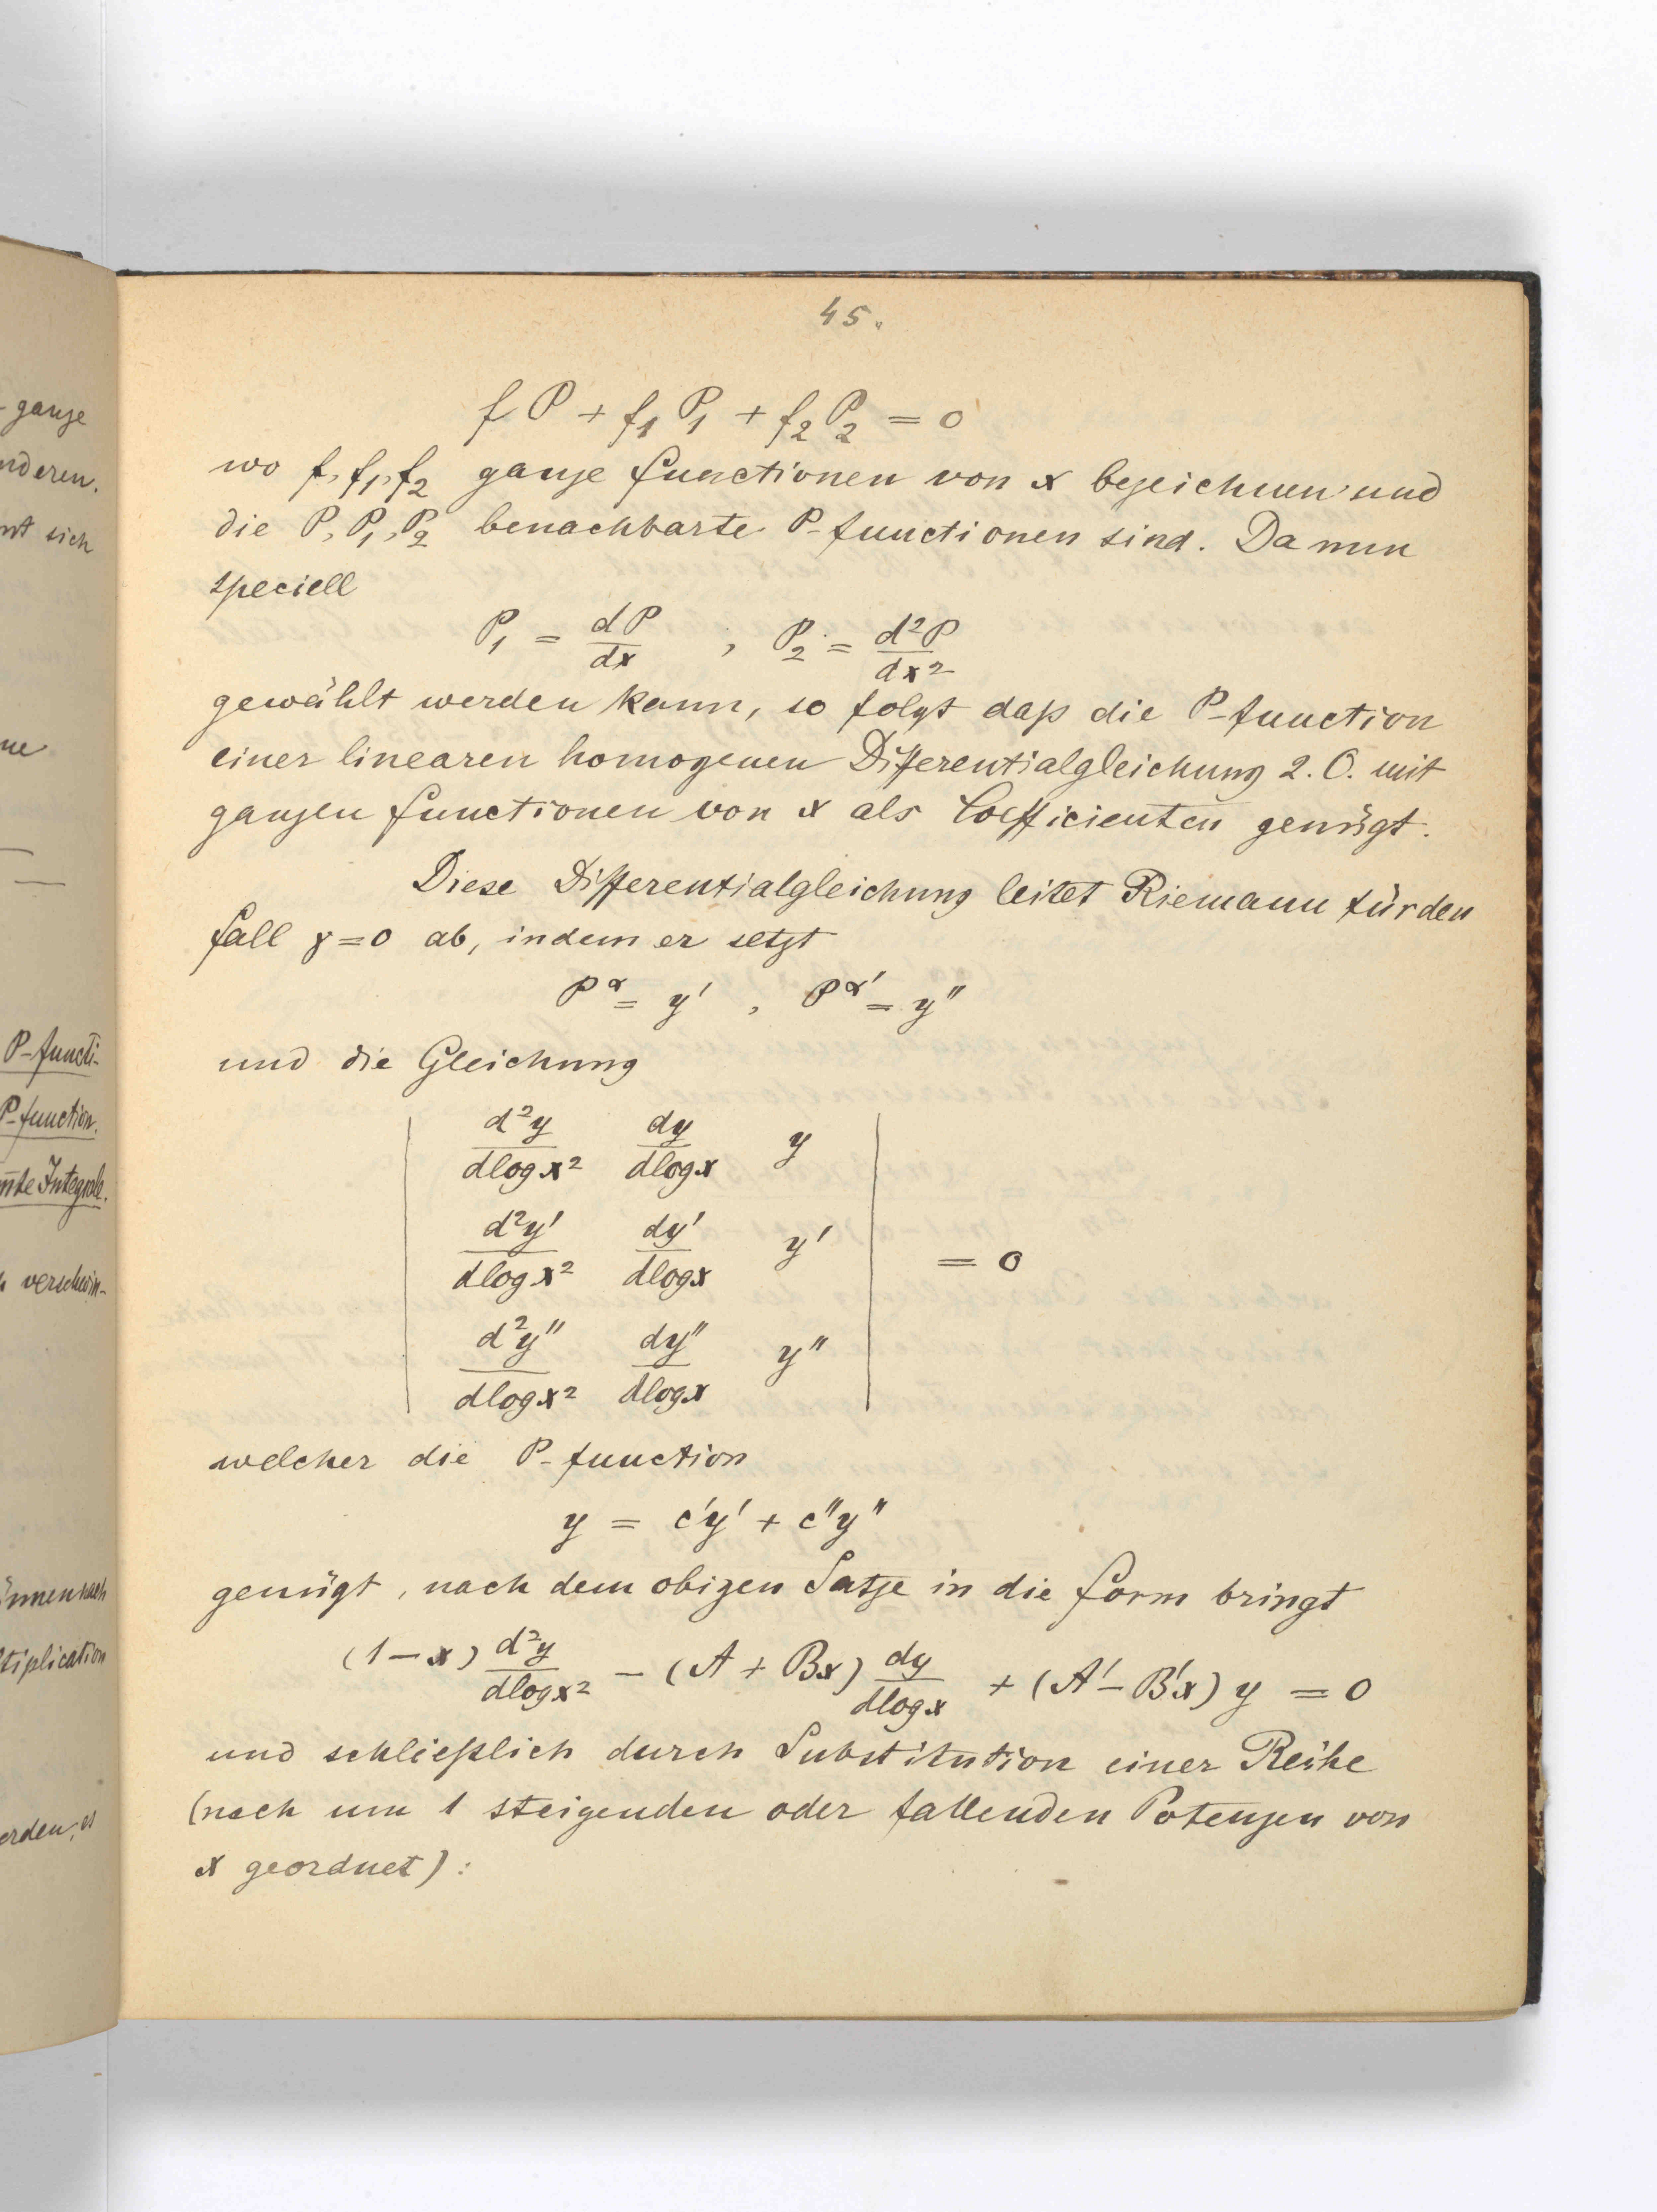 ganze
nderen.
nt sich
P-functi-
P-function.
mte Integrale.
verschwin-
önnen nach
tiplication
erden, es
45.
f P + f₁ P₁ + f₂ P₂ = 0
wo f, f₁, f₂ ganze Functionen von x bezeichnen und
die P, P₁, P₂ benachbarte P-functionen sind. Da nun
speciell
P₁ = dP/dx , P₂ = d²P/dx²
gewählt werden kann, so folgt daß die P-function
einer linearen homogenen Differentialgleichung 2. O. mit
ganzen Functionen von x als Coefficienten genügt.
Diese Differentialgleichung leitet Riemann für den
Fall γ=0 ab, indem er setzt
P^α = y' , P^α' = y"
und die Gleichung
| d²y/dlogx² dy/dlogx y |
| d²y'/dlogx² dy'/dlogx y' | = 0
| d²y"/dlogx² dy"/dlogx y" |
welcher die P-function
y = c'y' + c"y"
genügt, nach dem obigen Satze in die Form bringt
(1-x) d²y/dlogx² - (A + Bx) dy/dlogx + (A' - B'x) y = 0
und schließlich durch Substitution einer Reihe
(nach um 1 steigenden oder fallenden Potenzen von
x geordnet):